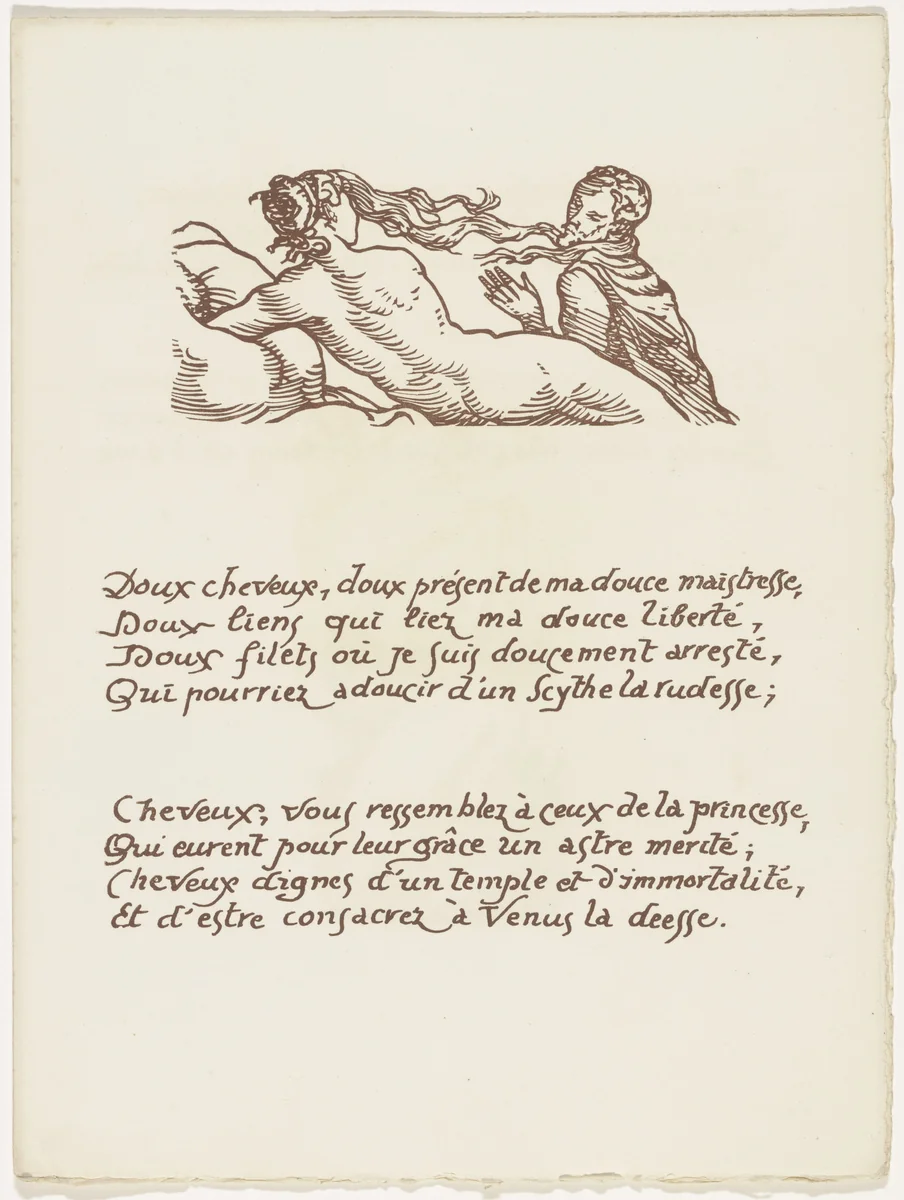 Doux cheveux, doux présent de ma douce maistresse,
Doux liens qui liez ma douce liberté,
Doux filets où je suis doucement arresté,
Qui pourriez adoucir d'un Scythe la rudesse;
Cheveux, vous ressemblez à ceux de la princesse,
Qui eurent pour leur grâce un astre merité;
Cheveux dignes d'un temple et d'immortalité,
Et d'estre consacrez à Venus la deesse.